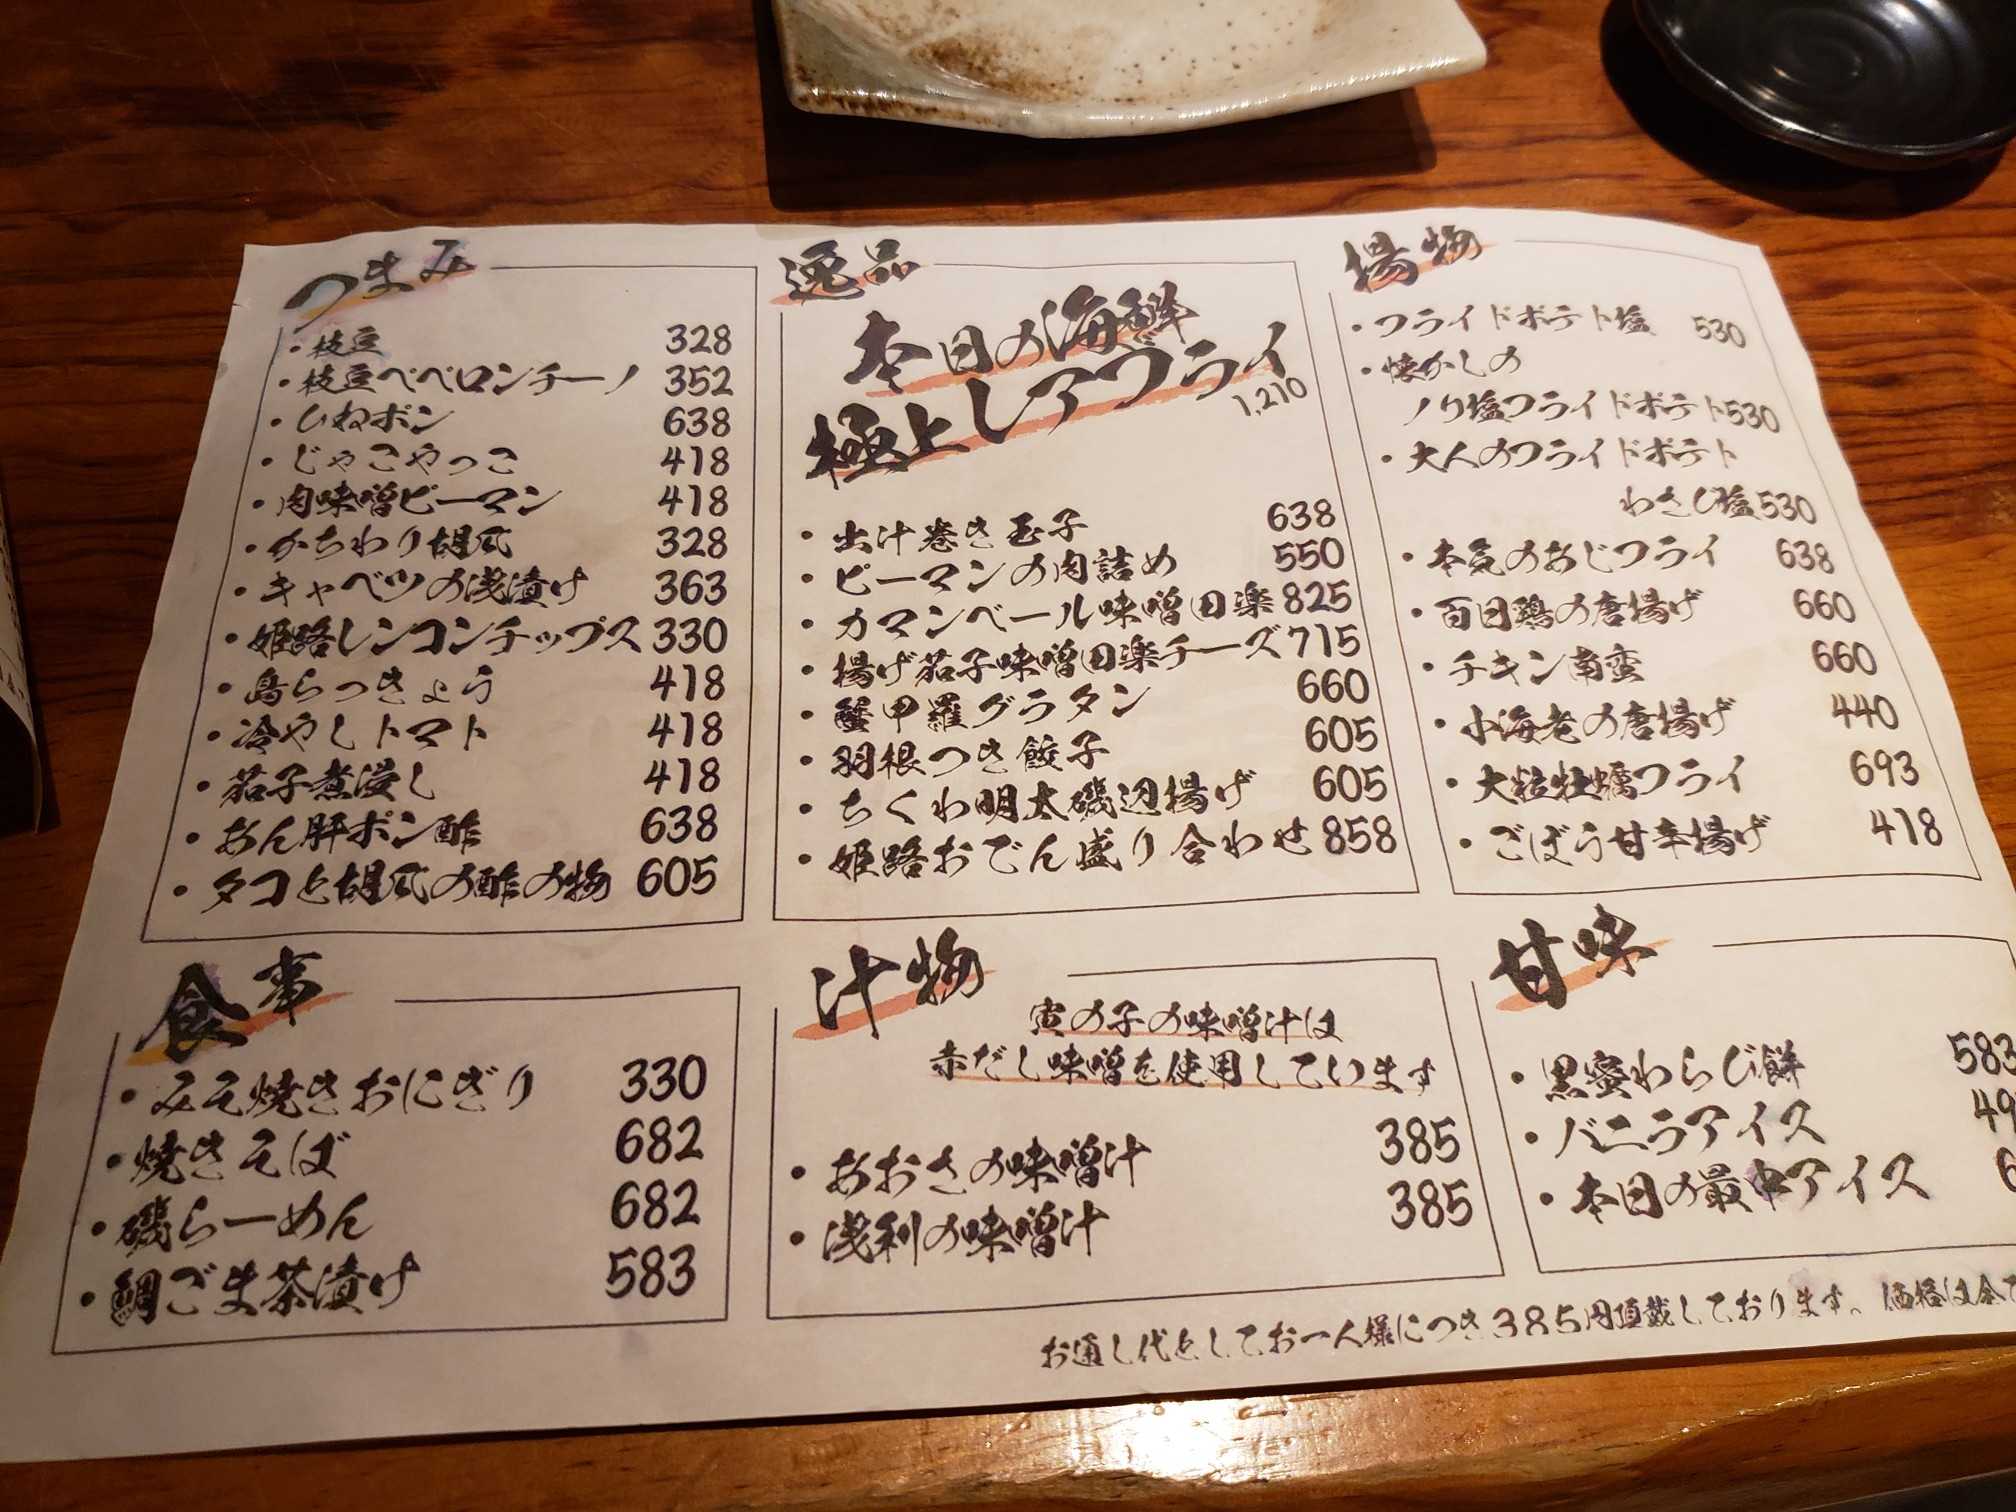 つまみ
・枝豆 328
・枝豆ペペロンチーノ 352
・ひねポン 638
・じゃこやっこ 418
・肉味噌ピーマン 418
・かちわり胡瓜 328
・キャベツの浅漬け 363
・姫路レンコンチップス 330
・島らっきょう 418
・冷やしトマト 418
・茄子煮浸し 418
・あん肝ポン酢 638
・タコと胡瓜の酢の物 605
逸品
本日の海鮮
極上レアフライ
1,210
・出汁巻き玉子 638
・ピーマンの肉詰め 550
・カマンベール味噌田楽 825
・揚げ茄子味噌田楽チーズ 715
・蟹甲羅グラタン 660
・羽根つき餃子 605
・ちくわ明太磯辺揚げ 605
・姫路おでん盛り合わせ 858
揚物
・フライドポテト塩 530
・懐かしの
ノリ塩フライドポテト 530
・大人のフライドポテト
わさび塩 530
・本気のあじフライ 638
・百日鶏の唐揚げ 660
・チキン南蛮 660
・小海老の唐揚げ 440
・大粒牡蠣フライ 693
・ごぼう甘辛揚げ 418
食事
・みそ焼きおにぎり 330
・焼きそば 682
・磯らーめん 682
・鯛ごま茶漬け 583
汁物
寅の子の味噌汁は
赤だし味噌を使用しています
・あおさの味噌汁 385
・浅利の味噌汁 385
甘味
・黒蜜わらび餅 583
・バニラアイス 49
・本日の最中アイス 6
お通し代としてお一人様につき385円頂戴しております。価格は全て